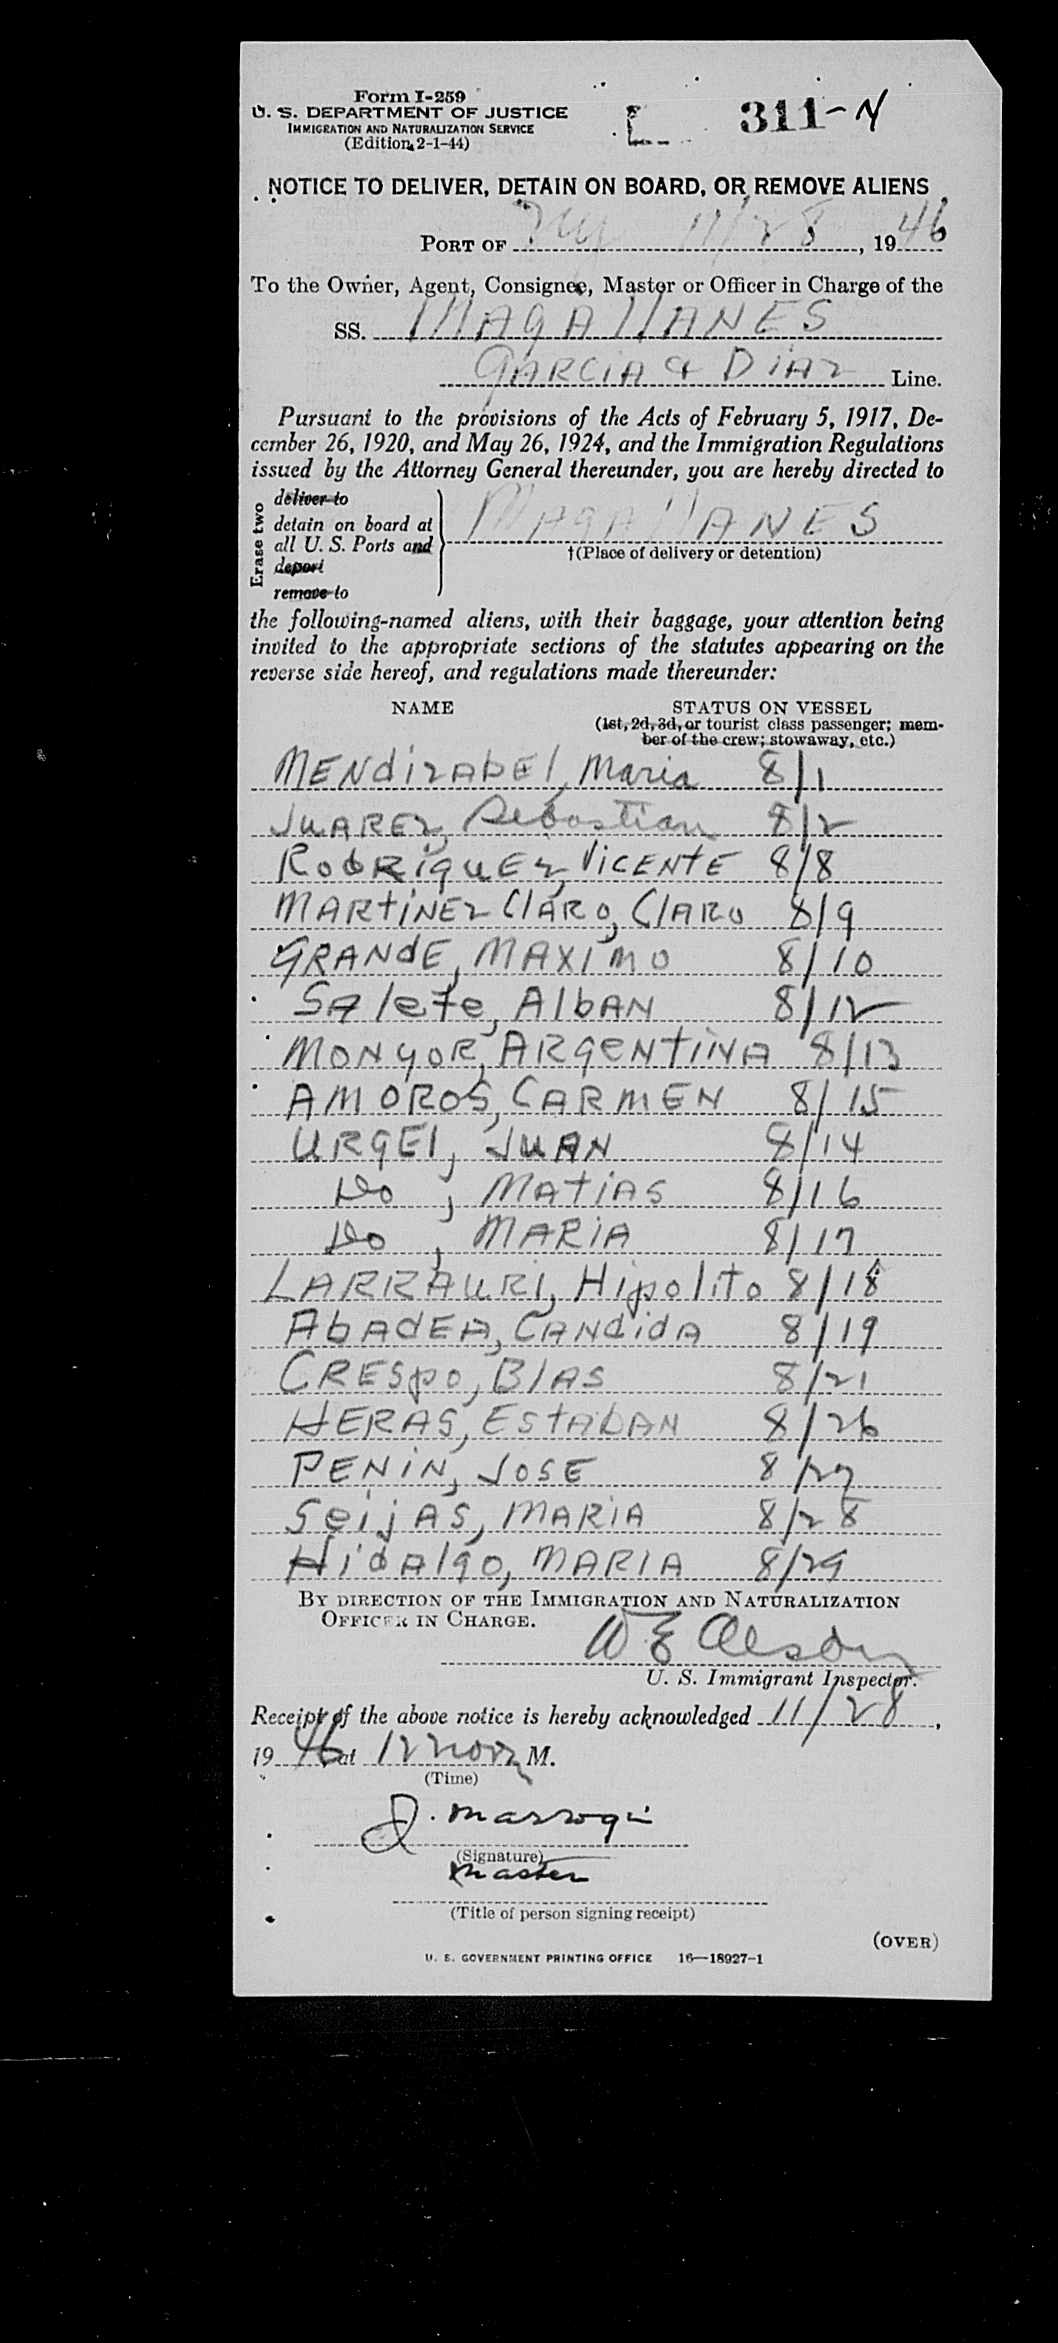 Form I-259
U. S. DEPARTMENT OF JUSTICE
IMMIGRATION AND NATURALIZATION SERVICE
(Edition 2-1-44)
311-N
NOTICE TO DELIVER, DETAIN ON BOARD, OR REMOVE ALIENS
PORT OF NY 11/28, 1946
To the Owner, Agent, Consignee, Master or Officer in Charge of the
SS. MAGALLANES
GARCIA & DIAZ Line.
Pursuant to the provisions of the Acts of February 5, 1917, De-
cember 26, 1920, and May 26, 1924, and the Immigration Regulations
issued by the Attorney General thereunder, you are hereby directed to
Erase two
deliver to
detain on board at
all U. S. Ports and
deport
remove to
MAGALLANES
†(Place of delivery or detention)
the following-named aliens, with their baggage, your attention being
invited to the appropriate sections of the statutes appearing on the
reverse side hereof, and regulations made thereunder:
NAME STATUS ON VESSEL
(1st, 2d, 3d, or tourist class passenger; mem-
ber of the crew; stowaway, etc.)
MENdizAbEl, Maria 8/1
JUAREZ, Sebastian 8/2
RodRiguEz, VicENtE 8/8
MARtiNEz ClARo, ClARo 8/9
GRANdE, MAXiMO 8/10
SAlete, AlbAN 8/12
MONyOR, ARgENtiNA 8/13
AMOROS, CARMEN 8/15
URGEl, JUAN 8/14
Do, MAtiAS 8/16
Do, MARiA 8/17
LARRAURI, Hipolito 8/18
AbAdEA, CANdidA 8/19
CRESpo, BlAS 8/21
HERAS, EStAbAN 8/26
PENiN, JOSE 8/27
SeijAS, MARiA 8/28
HidAlgo, MARIA 8/29
BY DIRECTION OF THE IMMIGRATION AND NATURALIZATION
OFFICER IN CHARGE.
W E Olson
U. S. Immigrant Inspector.
Receipt of the above notice is hereby acknowledged 11/28,
1946 at 12 noon M.
(Time)
J.
(Signature)
Master
(Title of person signing receipt)
(OVER)
U. S. GOVERNMENT PRINTING OFFICE 16—18927-1